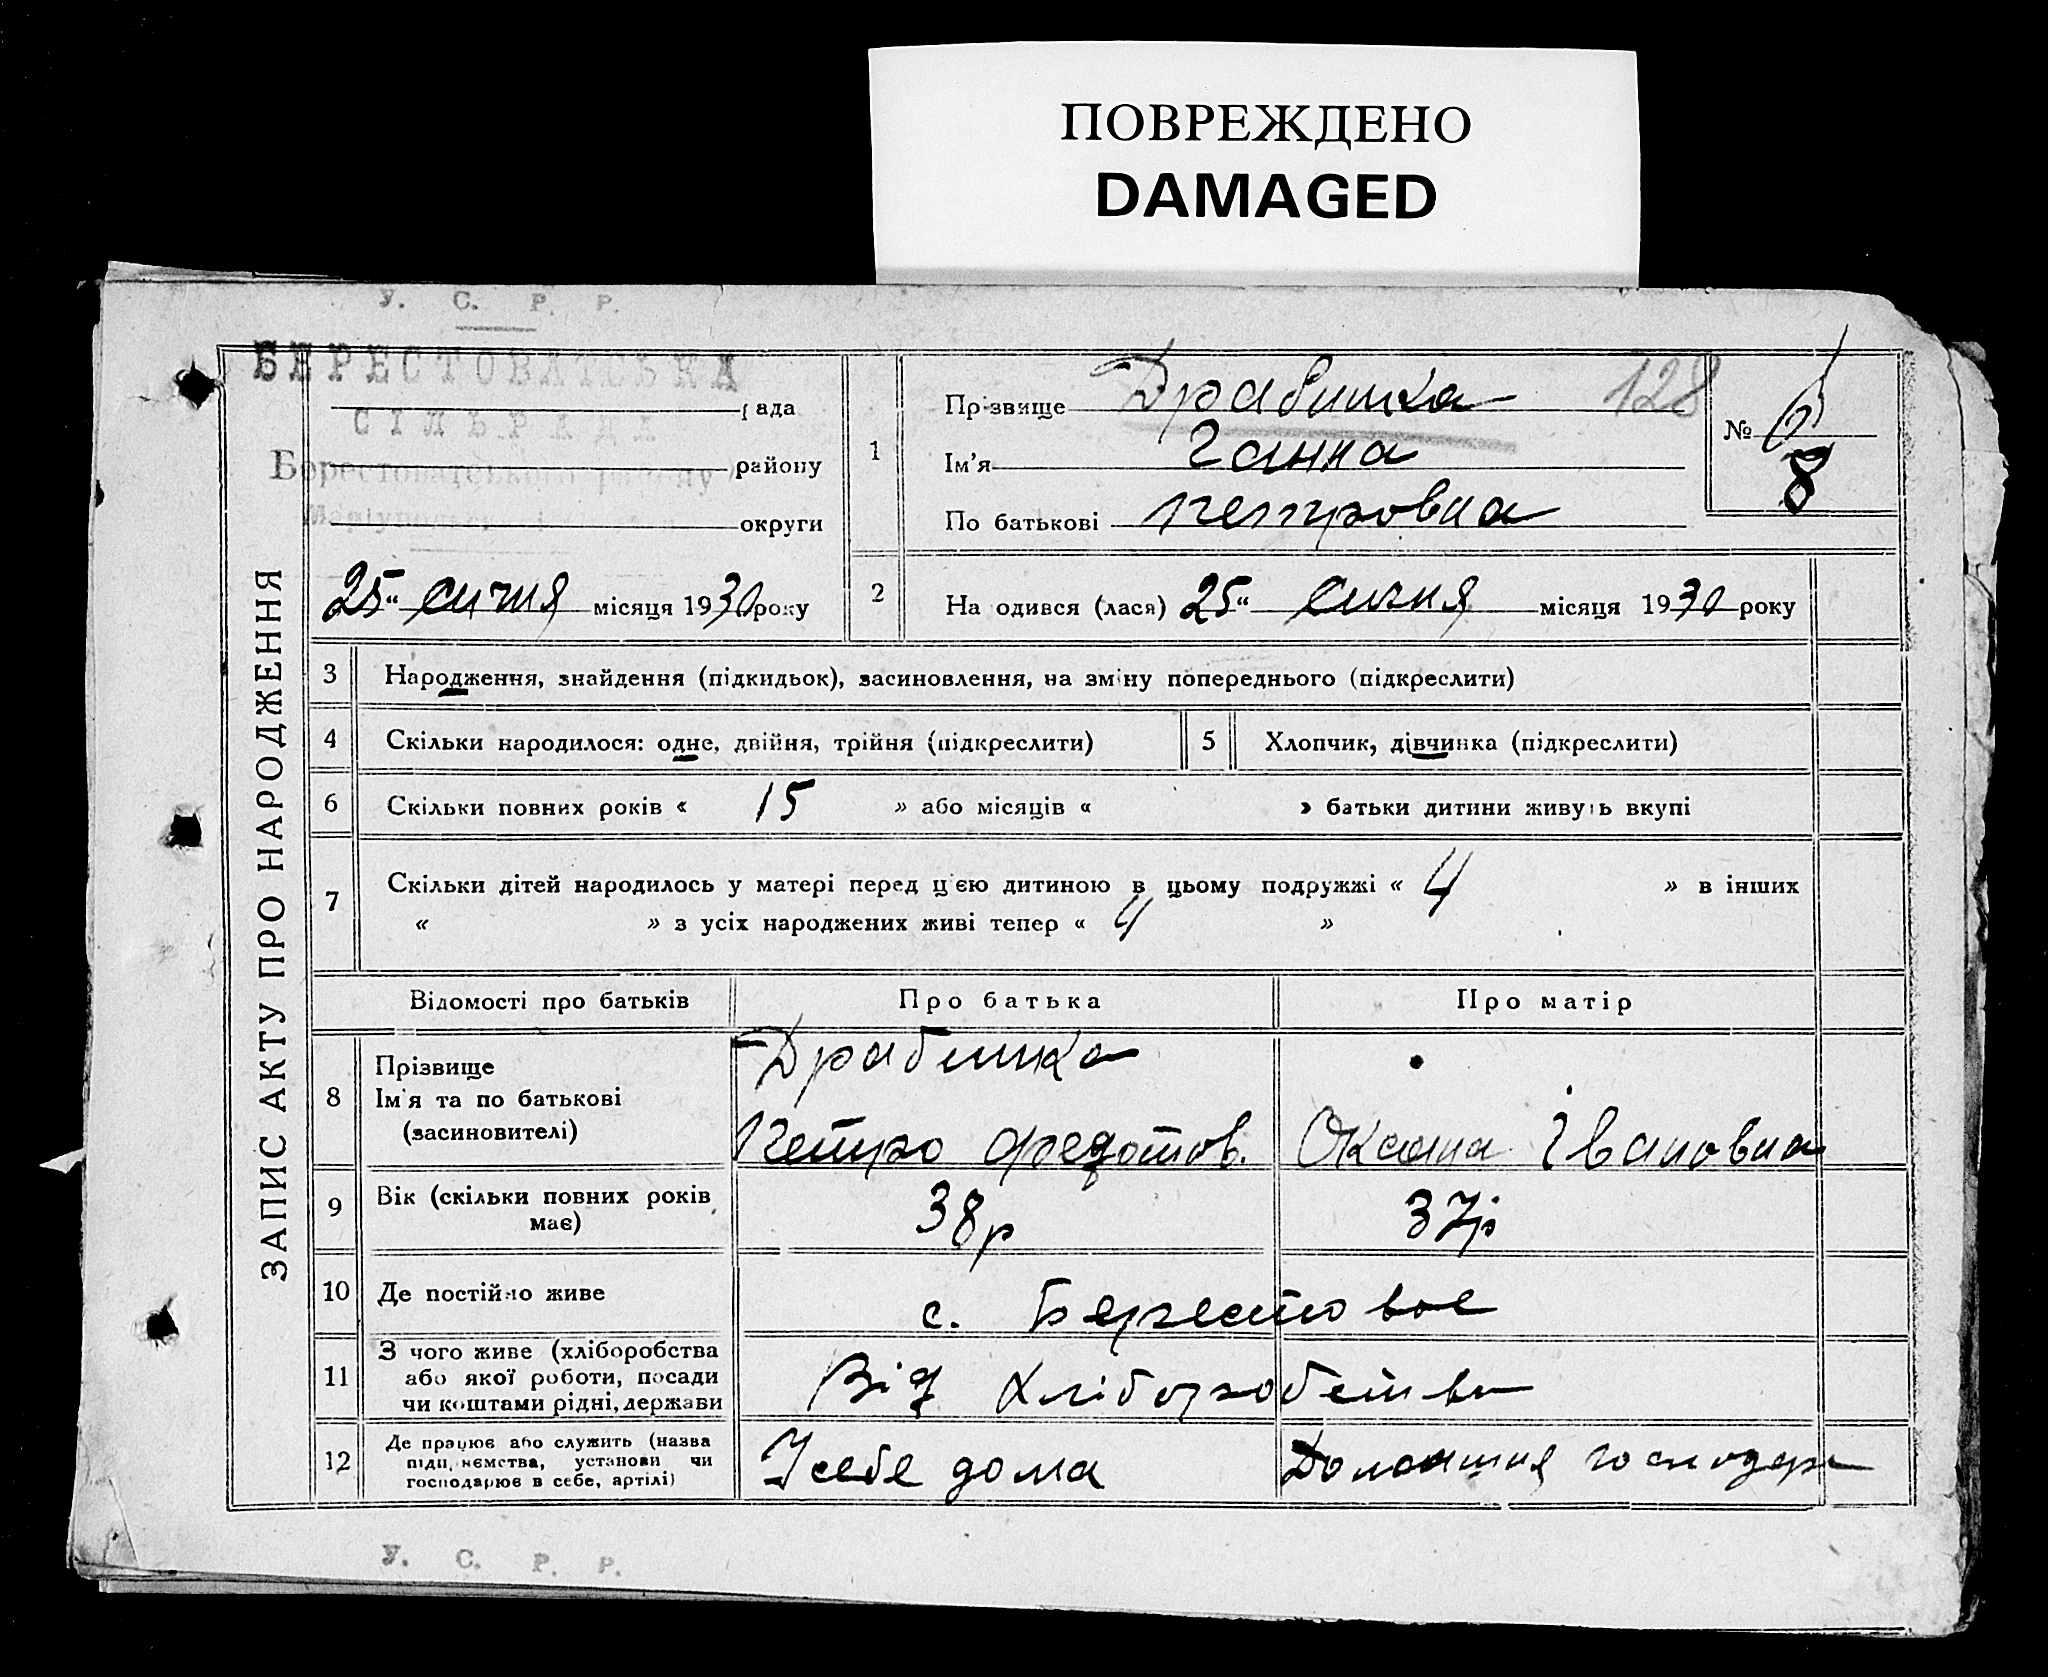 ПОВРЕЖДЕНО
DAMAGED
У. С. Р. Р.
БЕРЕСТОВАТСЬКА
рада
СІЛЬРАДА
Берестоватського району
району
округи
25 " січня місяця 1930 року
ЗАПИС АКТУ ПРО НАРОДЖЕННЯ
1
Прізвище Драбишка 128
Ім'я Ганна
По батькові Петровна
№
8
2 На одився (лася) 25 " січня місяця 1930 року
3 Народження, знайдення (підкидьок), засиновлення, на зміну попереднього (підкреслити)
4 Скільки народилося: одне, двійня, трійня (підкреслити) 5 Хлопчик, дівчинка (підкреслити)
6 Скільки повних років « 15 » або місяців « » батьки дитини живуть вкупі
7 Скільки дітей народилось у матері перед цією дитиною в цьому подружжі « 4 » в інших
« » з усіх народжених живі тепер « 4 »
Відомості про батьків Про батька Про матір
8 Прізвище
Ім'я та по батькові
(засиновителі)
Драбишка
Петро Федотов. Оксана Івановна
9 Вік (скільки повних років
має)
38р 37р
10 Де постійно живе с. Берестовое
11 З чого живе (хліборобства
або якої роботи, посади
чи коштами рідні, держави
Від хліборобства
12 Де працює або служить (назва
підприємства, установи чи
господарює в себе, артілі)
У себе дома Домашня господар
У. С. Р. Р.